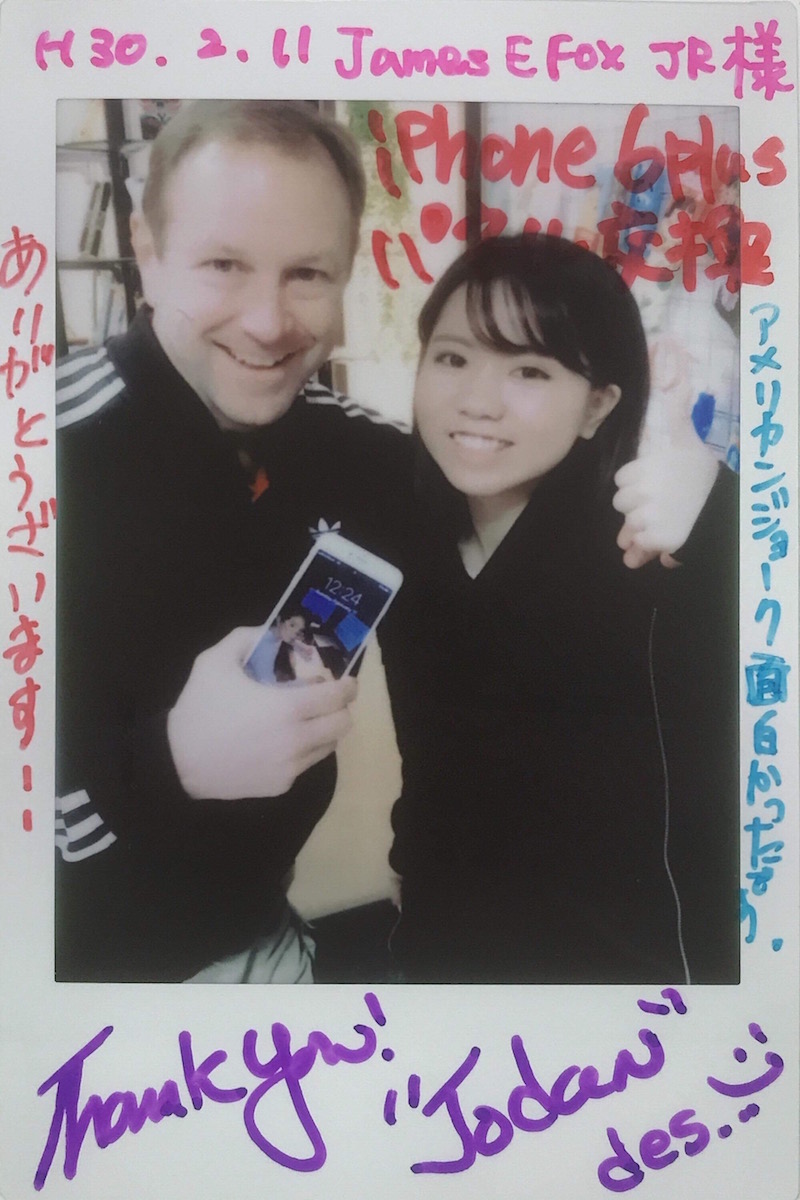 H30.2.11 James E Fox JR様
iPhone 6plus
パネル交換
ありがとうざいます!!
アメリカンジョーク面白かったです.
12:24
Thank you!
"Jodan"
des..